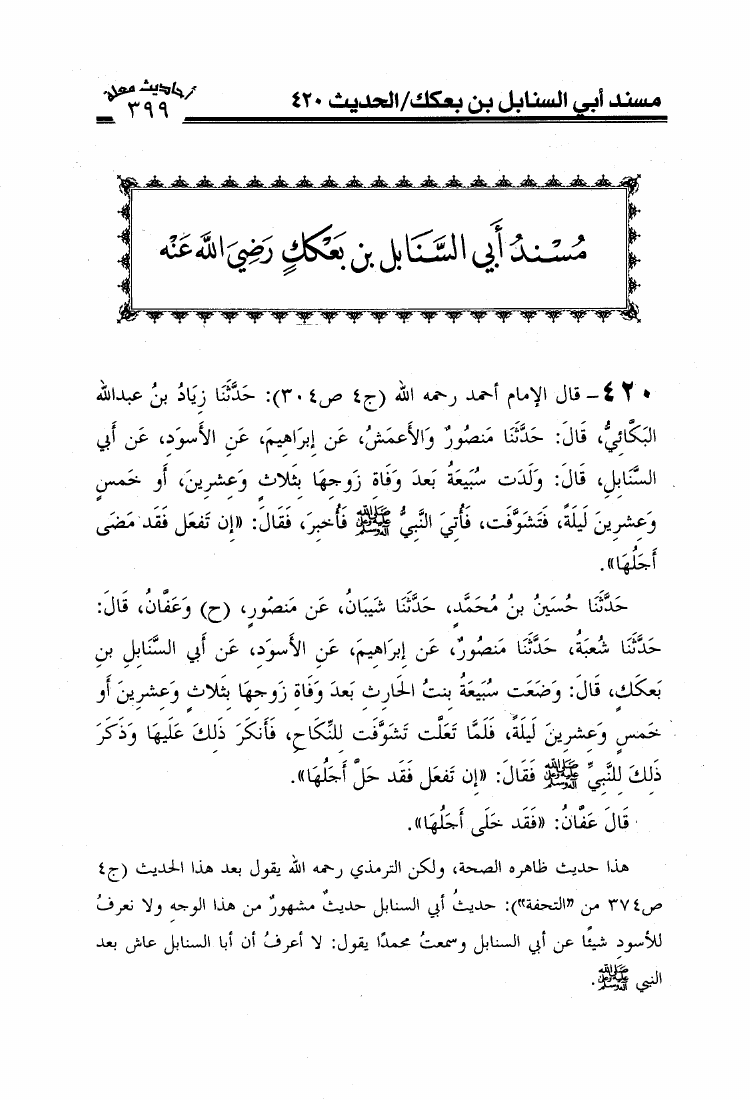 مسند أبي السنابل بن بعكك/الحديث ٤٢٠
أحاديث معلة
٣٩٩
مُسْنَدُ أَبِي السَّنَابِلِ بن بَعْكَكٍ رَضِيَ اللَّهُ عَنْهُ
٤٢٠- قال الإمام أحمد رحمه الله (ج٤ ص٣٠٤): حَدَّثَنَا زِيَادُ بنُ عبدالله
البَكَّائِيُّ، قَالَ: حَدَّثَنَا مَنصُورٌ وَالأَعمَشُ، عَن إِبرَاهِيمَ، عَنِ الأَسوَدِ، عَن أَبِي
السَّنَابِلِ، قَالَ: وَلَدَت سُبَيعَةُ بَعدَ وَفَاةِ زَوجِهَا بِثَلاثٍ وَعِشرِينَ، أَو خَمسٍ
وَعِشرِينَ لَيلَةً، فَتَشَوَّفَت، فَأُتِيَ النَّبِيُّ ﷺ فَأُخبِرَ، فَقَالَ: «إِن تَفعَل فَقَد مَضَى
أَجَلُهَا».
حَدَّثَنَا حُسَينُ بنُ مُحَمَّدٍ، حَدَّثَنَا شَيبَانُ، عَن مَنصُورٍ، (ح) وَعَفَّانُ، قَالَ:
حَدَّثَنَا شُعبَةُ، حَدَّثَنَا مَنصُورٌ، عَن إِبرَاهِيمَ، عَنِ الأَسوَدِ، عَن أَبِي السَّنَابِلِ بنِ
بَعكَكٍ، قَالَ: وَضَعَت سُبَيعَةُ بِنتُ الحَارِثِ بَعدَ وَفَاةِ زَوجِهَا بِثَلاثٍ وَعِشرِينَ أَو
خَمسٍ وَعِشرِينَ لَيلَةً، فَلَمَّا تَعَلَّت تَشَوَّفَت لِلنِّكَاحِ، فَأَنكَرَ ذَلِكَ عَلَيهَا وَذَكَرَ
ذَلِكَ لِلنَّبِيِّ ﷺ فَقَالَ: «إِن تَفعَل فَقَد حَلَّ أَجَلُهَا».
قَالَ عَفَّانُ: «فَقَد خَلَى أَجَلُهَا».
هذا حديث ظاهره الصحة، ولكن الترمذي رحمه الله يقول بعد هذا الحديث (ج٤
ص٣٧٤ من «التحفة»): حديثُ أبي السنابل حديثٌ مشهورٌ من هذا الوجه ولا نعرفُ
للأسود شيئًا عن أبي السنابل وسمعتُ محمدًا يقول: لا أعرفُ أن أبا السنابل عاش بعد
النبي ﷺ.